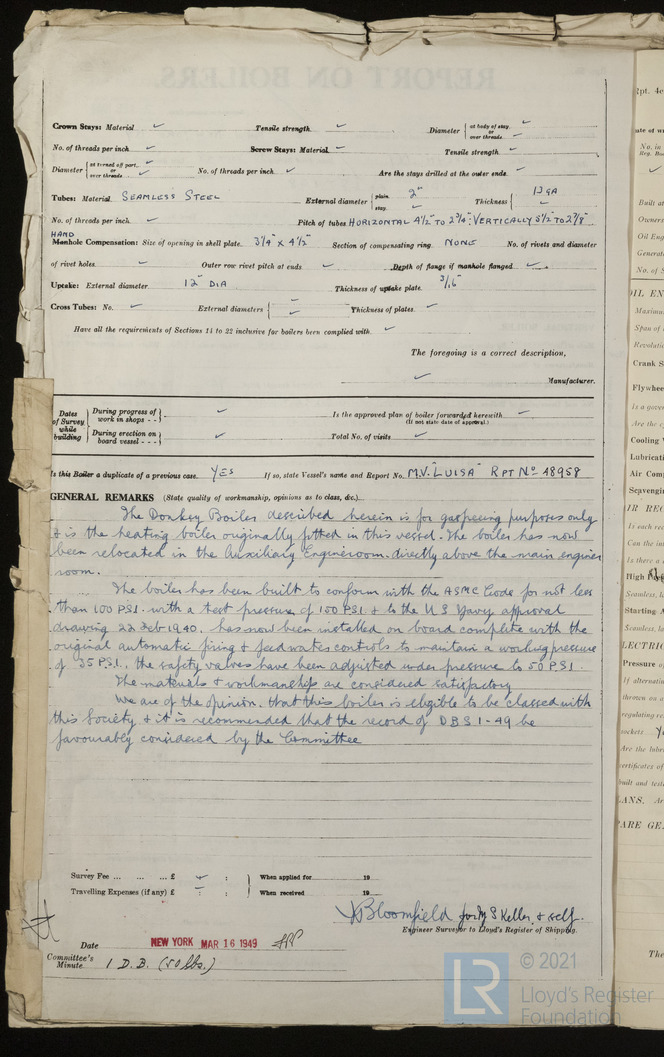 REPORT ON BOILERS.
Crown Stays: Material ✓ Tensile strength ✓ Diameter { at body of stay, ✓ or over threads ✓
No. of threads per inch ✓ Screw Stays: Material ✓ Tensile strength ✓
Diameter { at turned off part, ✓ or over threads ✓ No. of threads per inch ✓ Are the stays drilled at the outer ends ✓
Tubes: Material SEAMLESS STEEL External diameter { plain 2" stay ✓ Thickness { 13 GA ✓
No. of threads per inch ✓ Pitch of tubes HORIZONTAL 4½" TO 2¾" : VERTICALLY 3½" TO 2⅞"
HAND
Manhole Compensation: Size of opening in shell plate 3¼" x 4½" Section of compensating ring NONE No. of rivets and diameter
of rivet holes ✓ Outer row rivet pitch at ends ✓ Depth of flange if manhole flanged ✓
Uptake: External diameter 12" DIA Thickness of uptake plate 3/16"
Cross Tubes: No. ✓ External diameters { ✓ ✓ Thickness of plates ✓
Have all the requirements of Sections 14 to 22 inclusive for boilers been complied with ✓
The foregoing is a correct description,
✓ Manufacturer.
Dates of Survey while building { During progress of work in shops - - } ✓ Is the approved plan of boiler forwarded herewith ✓
(If not state date of approval.)
{ During erection on board vessel - - - } ✓ Total No. of visits ✓
Is this Boiler a duplicate of a previous case. YES If so, state Vessel's name and Report No. M.V. "LUISA" RPT No 48958
GENERAL REMARKS (State quality of workmanship, opinions as to class, &c.)
The Donkey Boiler described herein is for gasfreeing purposes only
& is the heating boiler originally fitted in this vessel. The boiler has now
been relocated in the Auxiliary Engineroom directly above the main engine
room.
The boiler has been built to conform with the ASME Code for not less
than 100 PSI. with a test pressure of 150 PSI & to the US Navy approval
drawing 22 Feb 1940. has now been installed on board complete with the
original automatic firing & feedwater controls to maintain a working pressure
of 35 P.S.I., the safety valves have been adjusted under pressure to 50 PSI.
The materials & workmanship are considered satisfactory
We are of the opinion that this boiler is eligible to be classed with
this Society & it is recommended that the record of DBS 1-49 be
favourably considered by the Committee
Survey Fee ... ... ... £ : : } When applied for 19
Travelling Expenses (if any) £ : : } When received 19
Bloomfield for S Keller & self.
Engineer Surveyor to Lloyd's Register of Shipping.
Date NEW YORK MAR 16 1949
Committee's Minute 1 D.B. (50 lbs.)
© 2021
LR
Lloyd's Register
Foundation
Rpt. 4c
No. in
Reg. Boo
Built at
Owners
Oil Eng
Generat
No. of S
OIL EN
Maximum
Span of
Revoluti
Crank S
Flywhee
Is a gove
Are the c
Cooling
Lubricati
Air Comp
Scavengi
IR REC
Is each rec
Can the in
Is there a
High
Seamless, la
Starting A
Seamless, la
LECTRIC
Pressure of
If alternatin
thrown on a
regulating re
Are the lubri
certificates of
built and teste
LANS. Ar
PARE GE
The